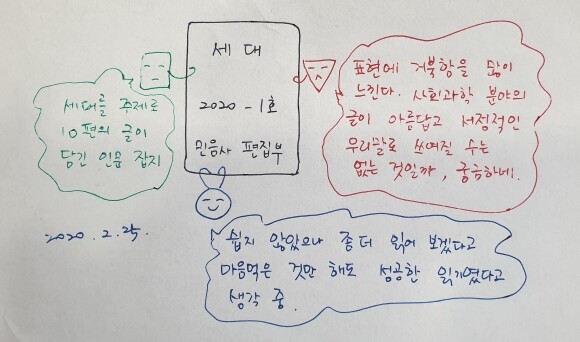 세대
2020-1호
민음사 편집부
세대를 주제로
10편의 글이
담긴 인문 잡지
표현에 거북함을 많이
느낀다. 사회과학 분야의
글이 아름답고 서정적인
우리말로 쓰여질 수는
없는 것일까, 궁금하네.
2020.2.25.
쉽지 않았으나 좀 더 읽어 보겠다고
마음먹은 것만 해도 성공한 읽기였다고
생각 중.